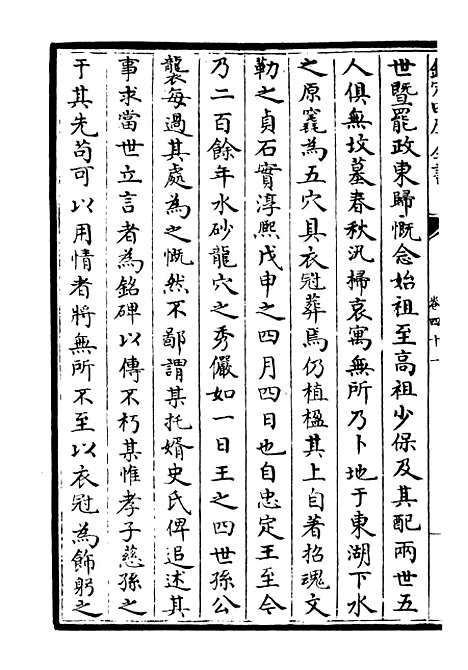 欽定四庫全書
卷四十一
世暨罷政東歸慨念始祖至高祖少保及其配兩世五
人俱無墳墓春秋汎掃哀寓無所乃卜地于東湖下水
之原窾為五穴具衣冠葬焉仍植楹其上自著招魂文
勒之貞石實淳熙戊申之四月四日也自忠定王至今
乃二百餘年水砂龍穴之秀儼如一日王之四世孫公
襲每過其處為之慨然不鄙謂某托婿史氏俾追述其
事求當世立言者為銘碑以傳不朽某惟孝子慈孫之
于其先苟可以用情者將無所不至以衣冠為飾躬之